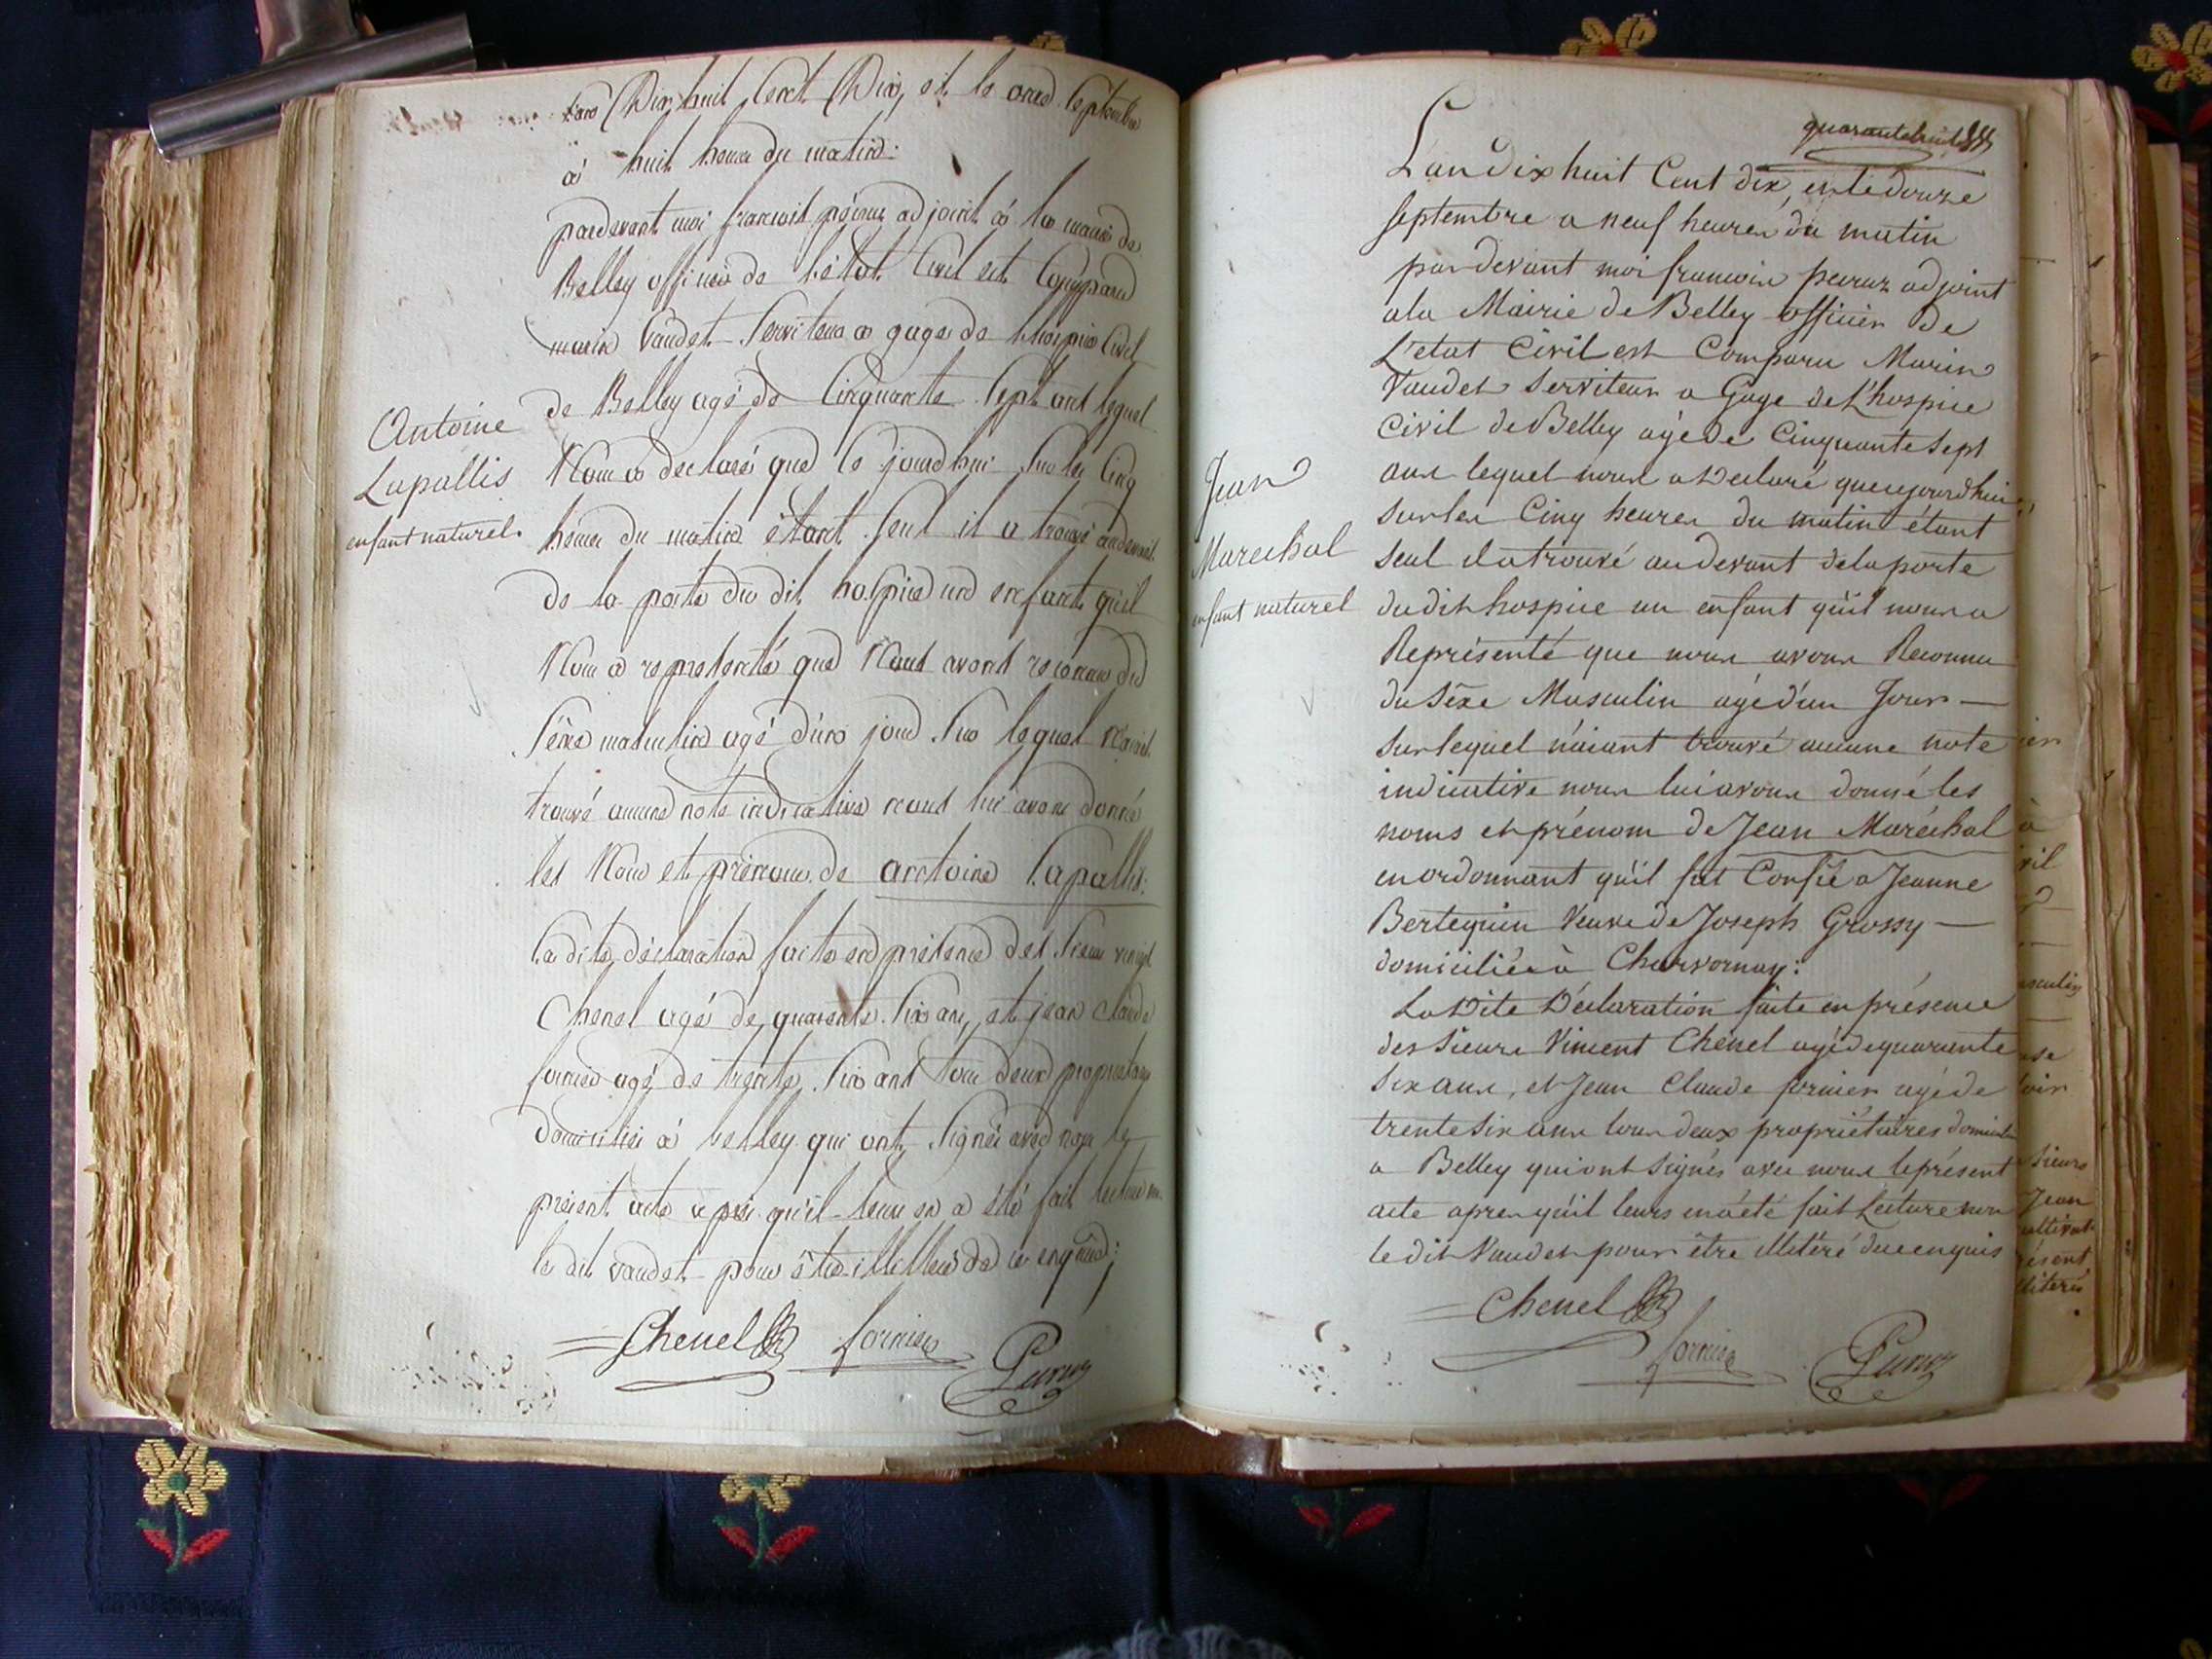 L'an Dix huit Cent Dix, et le onze Septembre
à huit heures du matin:
pardevant moi francois péruz adjoint à la mairie de
Belley officier de l'état Civil est Comparu
marin Vaudet Serviteur a gage de l'hospice Civil
de Belley agé de Cinquante Sept ans lequel
Nous a declaré que ce jourdhui Sur les Cinq
heures du matin étant Seul il a trouvé audevant
de la porte du dit hospice un enfant qu'il
Nous a representé que Nous avons reconnu du
Sêxe masculin agé d'un jour Sur lequel n'aiant
trouvé aucune note indicative nous lui avons donné
les Nom et prénom de antoine Lapallis:
La dite déclaration faite en présence des Sieurs vincent
Chenel agé de quarante Six ans, et jean claude
fornier agé de trente Six ans tous deux proprietaires
domiciliés à belley qui ont Signés avec nous le
présent acte après qu'il leurs en a été fait lecture non
le dit vaudet pour être illitteré de ce enquis:
Chenel fornier Peruz
Antoine
Lapallis
enfant naturel.
quarantehuit 48
L'an Dix huit Cent dix, et le douze
Septembre a neuf heures du matin
par devant moi francois peruz adjoint
a la Mairie de Belley officier de
L'etat Civil est Comparu Marin
Vaudet Serviteur a Gage de L'hospice
Civil de Belley agé de Cinquante Sept
ans lequel nous a Déclaré que cejourdhui
sur les Cinq heures du matin étant
Seul il a trouvé au devant de la porte
du dit hospice un enfant qu'il nous a
Représenté que nous avons Reconnu
du Sêxe Masculin agé d'un Jour —
Sur lequel n'aiant trouvé aucune note
indicative nous lui avons donné les
noms et prénom de Jean Maréchal
en ordonnant qu'il fut Confié a Jeanne
Bertequin Veuve de Joseph Grossy —
domiciliée à Charvornay:
La Dite Déclaration faite en présence
des Sieurs Vincent Chenel agé de quarante
Six ans, et Jean Claude fornier agé de
trente Six ans tous deux propriétaires domiciliés
a Belley qui ont Signés avec nous le présent
acte apres qu'il leurs en a été fait Lécture non
le dit Vaudet pour être illitéré de ce enquis
Chenel
fornier Peruz
Jean
Marechal
enfant naturel